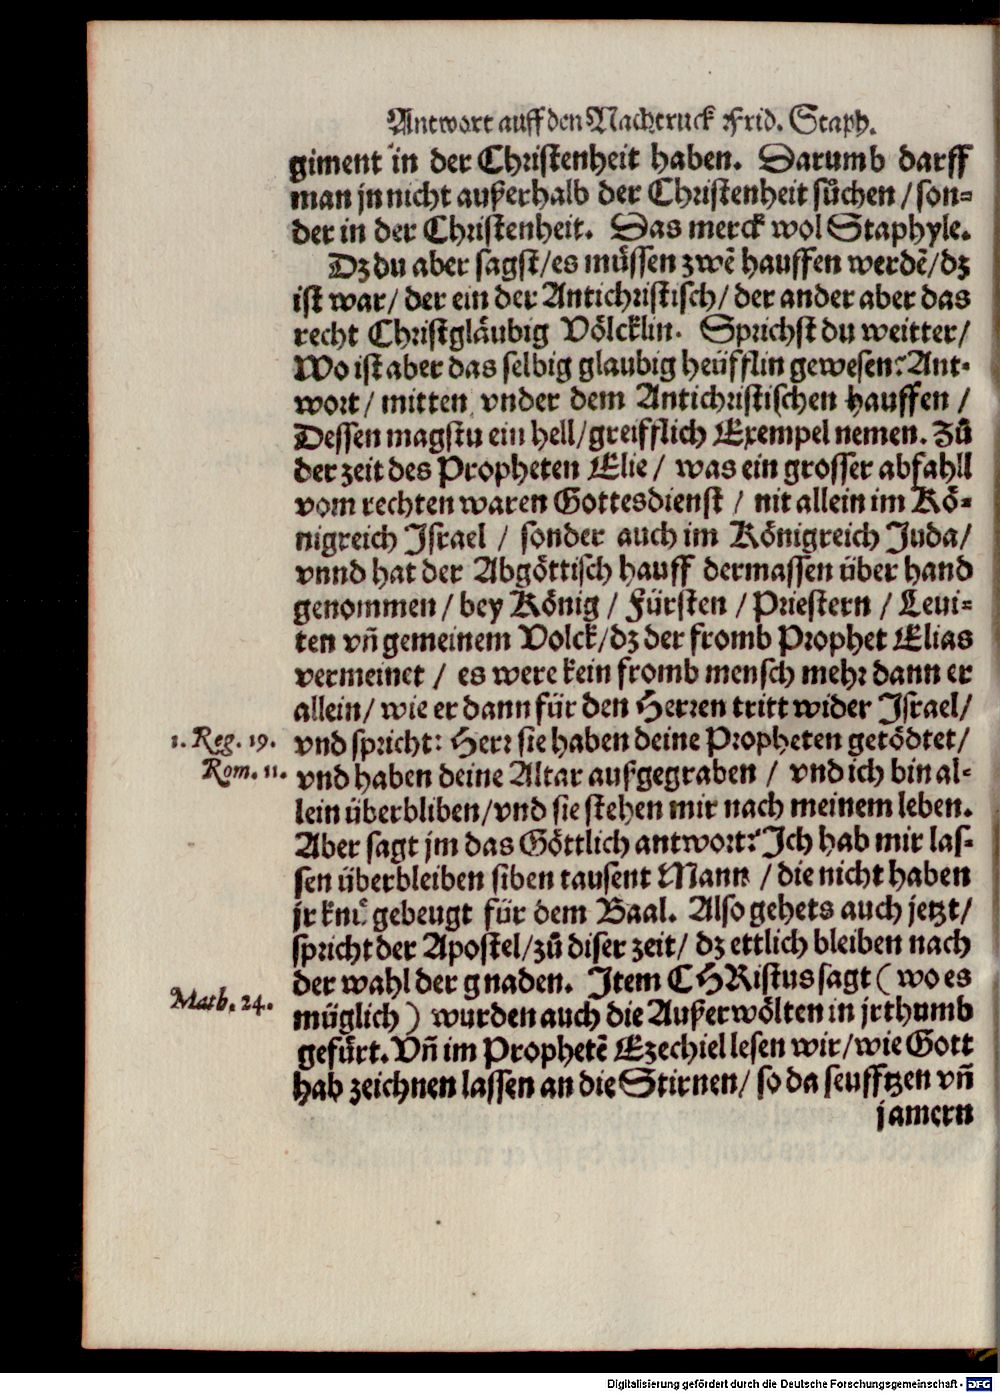 Antwort auff den Nachtruck Frid. Staph.
giment in der Christenheit haben. Darumb darff
man jn nicht außerhalb der Christenheit sůchen / son-
der in der Christenheit. Das merck wol Staphyle.
Dz du aber sagst / es müssen zwē hauffen werdē / dz
ist war / der ein der Antichristisch / der ander aber das
recht Christgläubig Völcklin. Sprichst du weitter /
Wo ist aber das selbig glaubig heüfflin gewesen? Ant-
wort / mitten vnder dem Antichristischen hauffen /
Dessen magstu ein hell / greifflich Exempel nemen. Zů
der zeit des Propheten Elie / was ein grosser abfahll
vom rechten waren Gottesdienst / nit allein im Kö-
nigreich Israel / sonder auch im Königreich Juda /
vnnd hat der Abgöttisch hauff dermassen über hand
genommen / bey König / Fürsten / Priestern / Leui-
ten vñ gemeinem Volck / dz der fromb Prophet Elias
vermeinet / es were kein fromb mensch mehr dann er
allein / wie er dann für den Herren tritt wider Israel /
1. Reg. 19. vnd spricht: Herr sie haben deine Propheten getödtet /
Rom. 11. vnd haben deine Altar außgegraben / vnd ich bin al-
lein überbliben / vnd sie stehen mir nach meinem leben.
Aber sagt jm das Göttlich antwort? Ich hab mir las-
sen überbleiben siben tausent Mann / die nicht haben
jr knü gebeugt für dem Baal. Also gehets auch jetzt /
spricht der Apostel / zů diser zeit / dz ettlich bleiben nach
der wahl der gnaden. Item CHRistus sagt ( wo es
Math. 24. müglich ) wurden auch die Außerwölten in jrthumb
gefürt. Vñ im Prophetē Ezechiel lesen wir / wie Gott
hab zeichnen lassen an die Stirnen / so da seufftzen vñ
jamern
Digitalisierung gefördert durch die Deutsche Forschungsgemeinschaft - DFG